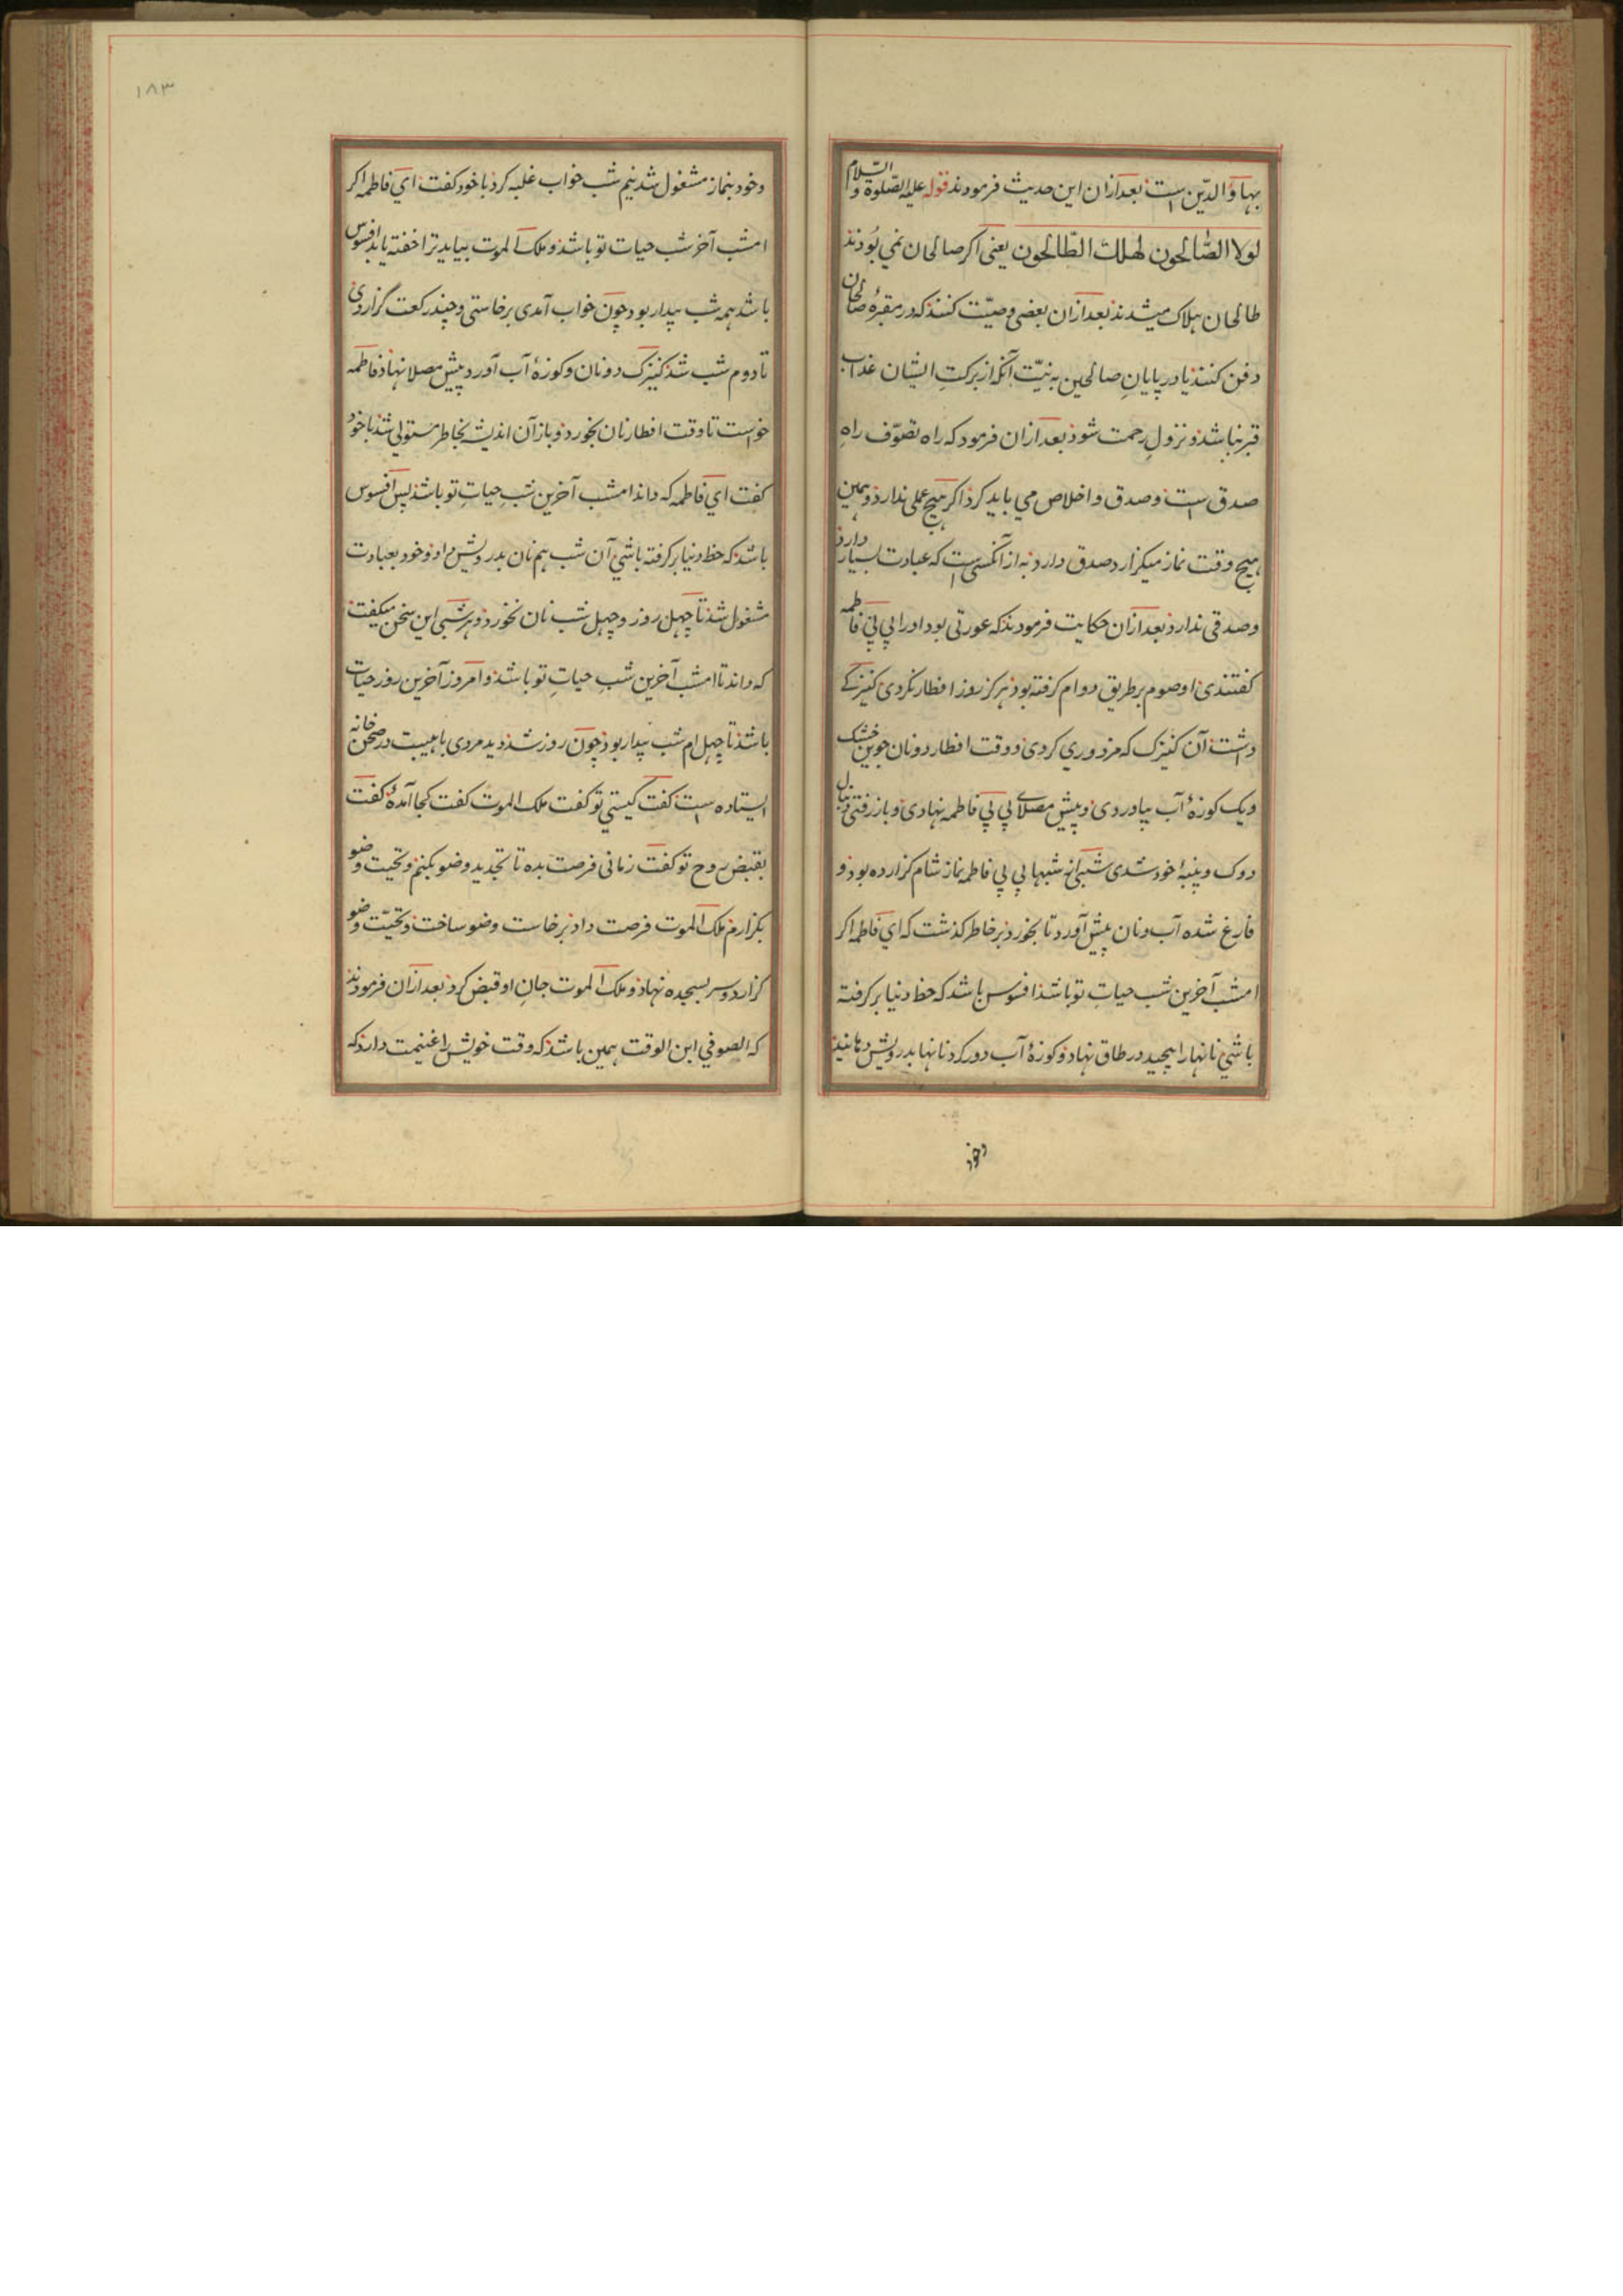 بهاؤالدین است بعد ازان این حدیث فرمودند قوله علیه الصلوة و السلام
لولا الصّالحون لهلك الطّالحون یعنی اکر صالحان نمي بُودند
طالحان هلاک میشدند بعد ازان بعضی وصیّت کنند که در مقبرهٔ صالحان
دفن کنند یا در پایانِ صالحین به نیّت آنکه از برکتِ ایشان عذاب
قبر نباشد و نزولِ رحمت شود بعد ازان فرمود که راه تصوّف راهِ
صدق است و صدق و اخلاص می باید کرد اکر هیچ عملی ندارد و همین
پنج وقت نماز میکزارد صدق دارد به از آنکسی است که عبادت بسیار دارد
و صدقی ندارد بعد ازان حکایت فرمودند که عورتی بود او را بي بي فاطمه
کفتندی او صوم بر طریق دوام کرفته بود هرکز روز افطار نکردی کنیزکے
داشت آن کنیزک که مزدوري کردی و وقت افطار دو نان جوین خشک
و یک کوزهٔ آب بیاوردی و پیش مصلاے بي بي فاطمه نهادی و باز رفتی دنبال
دوک و پنبهٔ خود شدی شبي از شبها بي بي فاطمه نماز شام کزارده بود و
فارغ شده آب و نان پیش آورد تا بخورد بر خاطر کذشت که اي فاطمه اکر
امشب آخرین شب حیاتِ تو باشد افسوس باشد که حظ دنیا بر کرفته
باشي نانها را پیچید در طاق نهاد و کوزهٔ آب دور کرد نانها بدرویش دهانید
وخود
١٨٣
و خود بنماز مشغول شد نیم شب خواب غلبه کرد با خود کفت اي فاطمه اکر
امشب آخر شب حیات تو باشد و ملک الموت بیاید ترا خفته یابد افسوس
باشد همه شب بیدار بود چون خواب آمدی برخاستی و چند رکعت گزاردی
تا دوم شب شد کنیزک دو نان و کوزهٔ آب آورد پیش مصلا نهاد فاطمه
خواست تا وقت افطار نان بخورد و باز آن اندیشه بخاطر مستولی شد با خود
کفت اي فاطمه که داند امشب آخرین شبِ حیاتِ تو باشد پس افسوس
باشد که حظ دنیا بر کرفته باشي آن شب هم نان بدرویش داد و خود بعبادت
مشغول شد تا چهل روز و چهل شب نان نخورد و هر شبي این سخن میکفت
که داند تا امشب آخرین شبِ حیاتِ تو باشد و امروز آخرین روز حیات
باشد تا چهل ام شب بیدار بود چون روز شد دید مردی با هیبت در صحن خانه
ایستاده است کفت کیستي تو کفت ملک الموت کفت کجا آمدهٔ کفت
بقبض روح تو کفت زمانی فرصت بده تا تجدید وضو بکنم و تحیت وضو
بکزارم ملک الموت فرصت داد برخاست وضو ساخت و تحیّت وضو
کزارد و سر بسجده نهاد و ملک الموت جانِ او قبض کرد بعد ازان فرمودند
که الصوفي ابن الوقت همین باشد که وقت خویش را غنیمت دارد که